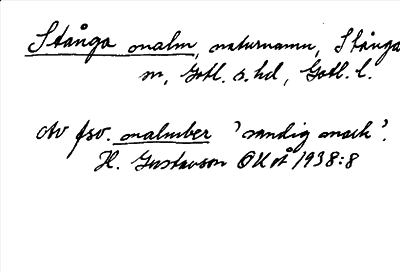 Stånga malm, naturnamn, Stånga
sn, Gotl. s. hd, Gotl. l.
Av fsv. malmber 'sandig mark'.
H. Gustavson OUÅ 1938:8